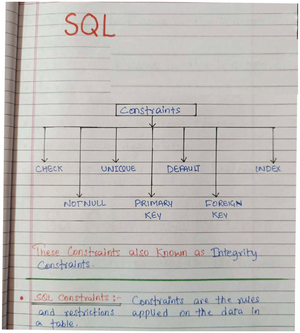 SQL
Constraints
CHECK UNICQUE DEFAULT INDEX
NOTNULL PRIMARY KEY FOREIGN KEY
These Constraints also Known as Integrity
Constraints.
• SQL Constraints :- Constraints are the rules
and restrictions applied on the data in
a table.